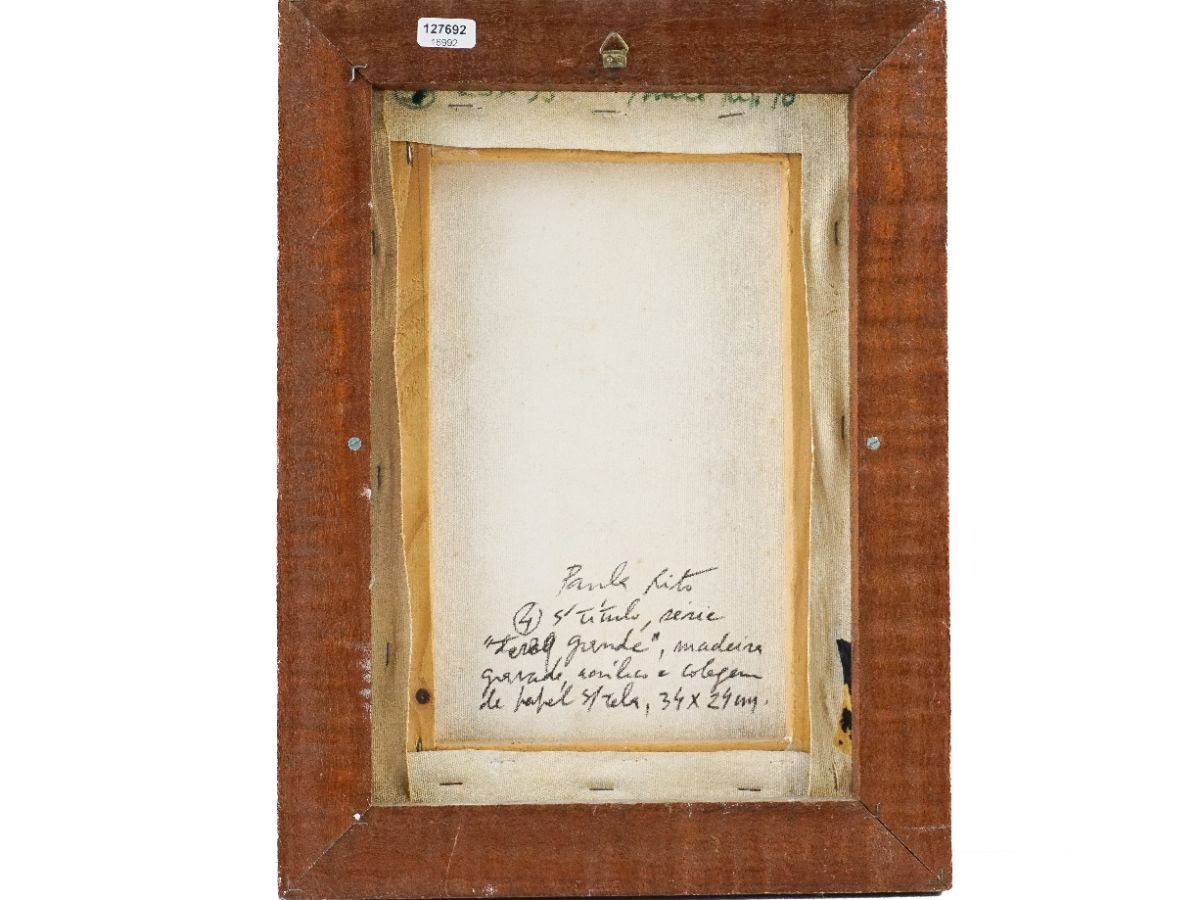 127692
16992
Paula Rito
4 s/ título, série
grande", madeira
gravada, acrílico e colagem
de papel s/ tela, 34 x 24 cm.